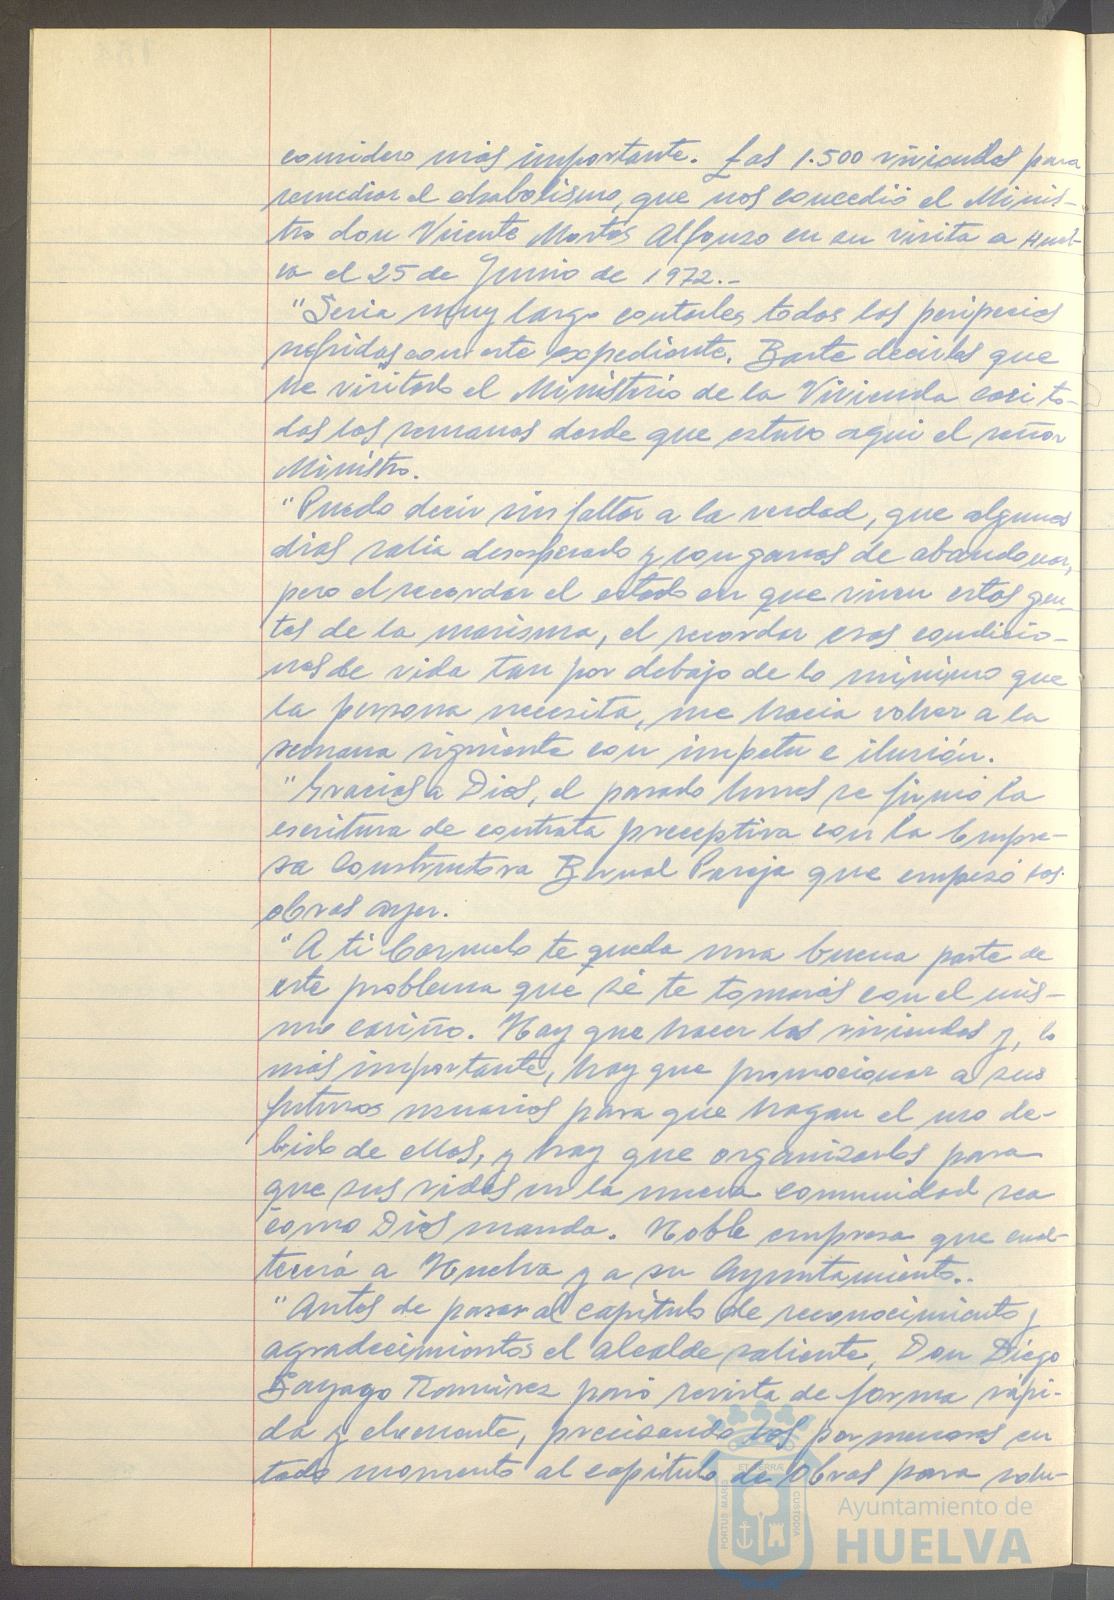 considero más importante. Las 1.500 viviendas para
remediar el chabolismo, que nos concedió el Minis-
tro don Vicente Mortes Alfonso en su visita a Huel-
va el 25 de Junio de 1972.-
"Seria muy largo contarles todas las peripecias
sufridas con este expediente. Baste decirles que
he visitado el Ministerio de la Vivienda casi to-
das las semanas desde que estuvo aqui el señor
Ministro.
"Puedo decir sin faltar a la verdad, que algunos
dias salia desesperado y con ganas de abandonar,
pero el recordar el estado en que viven estas gen-
tes de la marisma, el recordar esas condicio-
nes de vida tan por debajo de lo minimo que
la persona necesita, me hacia volver a la
semana siguiente con impetu e ilusión.
"Gracias a Dios, el pasado lunes se firmó la
escritura de contrata preceptiva con la Empre-
sa Constructora Bernal Pareja que empezó las
obras ayer.
"A ti Carmelo te queda una buena parte de
este problema que sé te tomarás con el mis-
mo cariño. Hay que hacer las viviendas y, lo
más importante, hay que promocionar a sus
futuros usuarios para que hagan el uso de-
bido de ellas, y hay que organizarlos para
que sus vidas en la nueva comunidad sea
como Dios manda. Noble empresa que enal-
tecerá a Huelva y a su Ayuntamiento..
"Antes de pasar al capitulo de reconocimiento y
agradecimientos el alcalde saliente, Don Diego
Sayago Ramirez pasó revista de forma rápi-
da y elocuente, precisando los pormenores en
todo momento al capitulo de obras para solu-
PORTUS MARIS
ET TERRAE
CUSTODIA
Ayuntamiento de
HUELVA